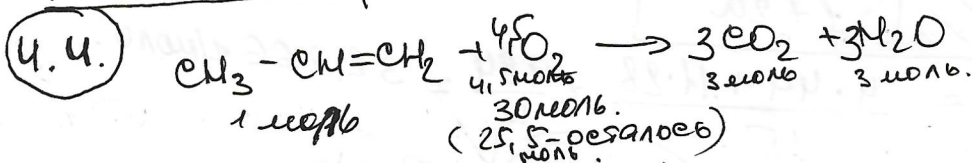 4.4. CH₃ - CH=CH₂ + 4,5O₂ ⟶ 3CO₂ + 3H₂O
1 моль 4,5моль 3 моль 3 моль.
30моль.
(25,5-осталось)
моль.